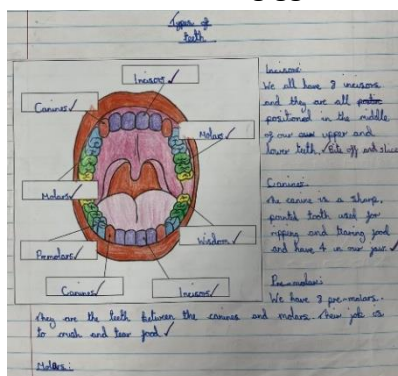 Types of
teeth
Incisors
Canines
Molars
Molars
Premolars
Wisdom
Canines
Incisors
Incisors:
We all have 8 incisors
and they are all
positioned in the middle
of our upper and
lower teeth. Bite off and slice
Canines:
The canine is a sharp,
pointed tooth used for
ripping and tearing food
and have 4 in our jaw.
Pre-molars:
We have 8 pre-molars.
They are the teeth between the canines and molars. Their job is
to crush and tear food
Molars: